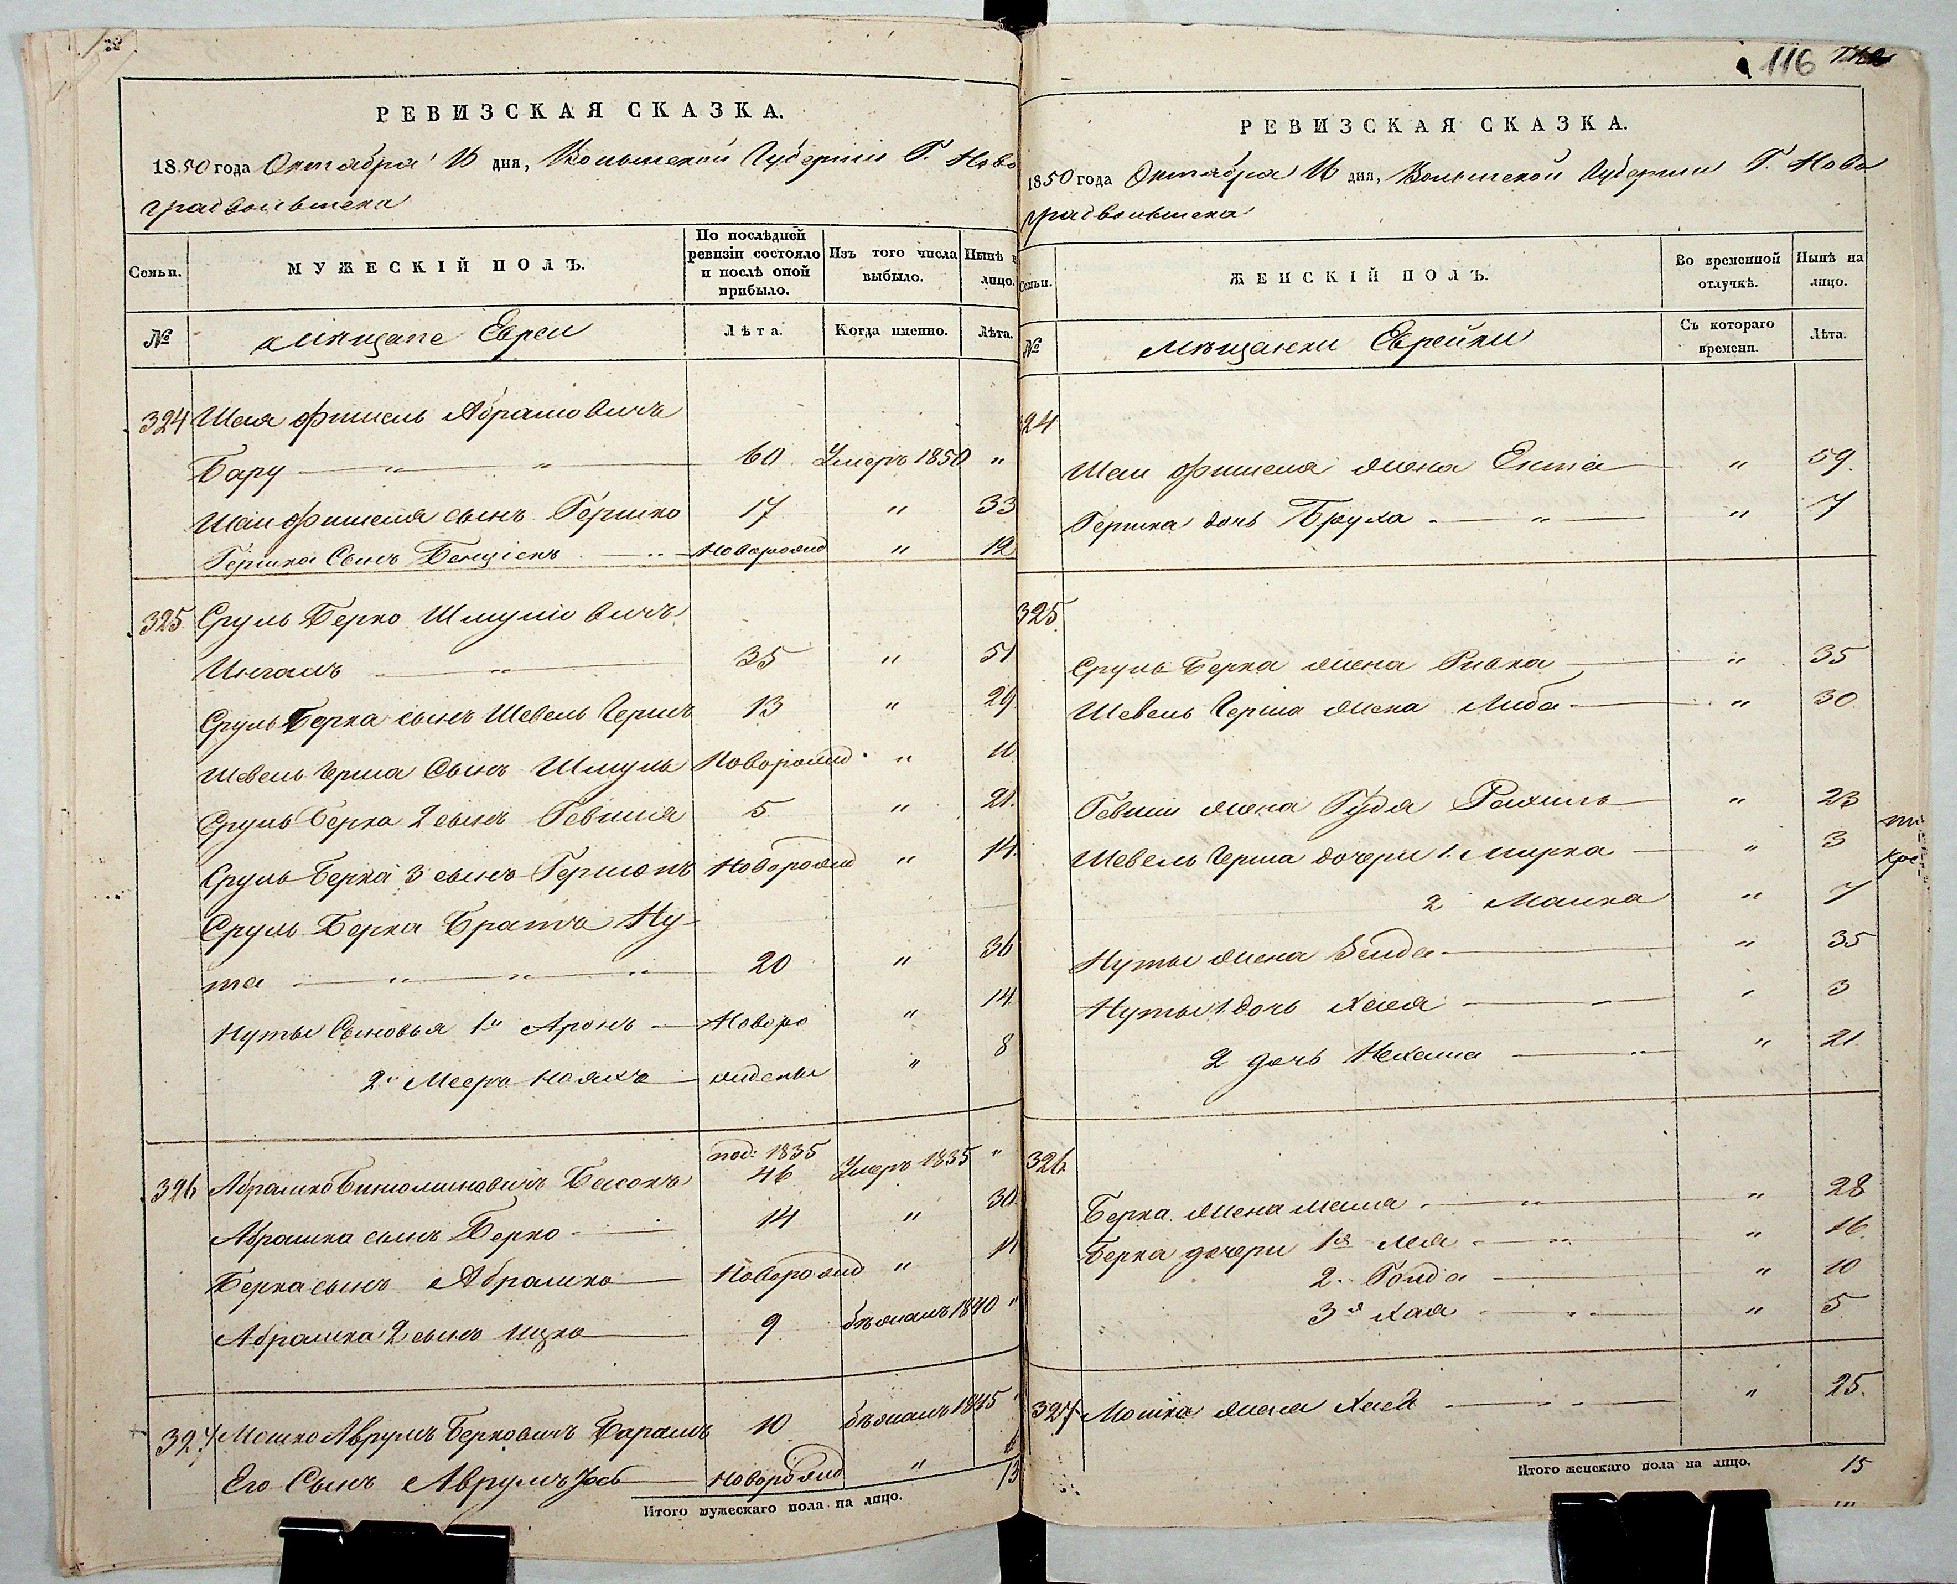 116
РЕВИЗСКАЯ СКАЗКА.
1850 года Октября 16 дня, Волынской Губернии Г. Ново
градволынска
Семьи.
МУЖЕСКІЙ ПОЛЪ.
По послѣдней ревизіи состояло и послѣ оной прибыло.
Изъ того числа выбыло.
Нынѣ на лицо.
№
Мѣщане Евреи
Лѣта.
Когда именно.
Лѣта.
324 Шая Фишель Абрамовичъ
Бару — " — " — 60 Умеръ 1850 "
Шаи Фишеля сынъ Гершко 17 " 33
Гершка Сынъ Бенціонъ — Новорожд " 12
325 Сруль Берко Шмулiовичъ
Ингалъ — " — 35 " 51
Сруль Берка сынъ Шевель Гершъ 13 " 29
Шевель Герша Сынъ Шмуль Новорожд " 10
Сруль Берка 2 сынъ Гевшія 5 " 21
Сруль Берка 3 сынъ Гершонъ Новорожд " 14
Сруль Берка Братъ Ну-
та — " — " — " — 20 " 36
Нуты Сыновья 1й Аронъ — Новоро " 14
2й Мееръ — ждены " 8
под: 1835
326 Абрамко Биніоминовичъ Басокъ 46 Умеръ 1835 "
Абрамка сынъ Берко — 14 " 30
Берка сынъ Абрамко — Новорожд " 11
Абрамка 2 сынъ Ицко — 9 бѣжалъ 1840 "
327 Мошко Аврумъ Берковичъ Барамъ 10 бѣжалъ 1845 "
Его Сынъ Аврумъ Іосъ — Новорожд "
Итого мужескаго пола на лицо. 13
РЕВИЗСКАЯ СКАЗКА.
1850 года Октября 16 дня, Волынской Губернии Г. Ново
градволынска
Семьи.
ЖЕНСКІЙ ПОЛЪ.
Во временной отлучкѣ.
Нынѣ на лицо.
№
Мѣщанки Еврейки
Съ котораго времени.
Лѣта.
324
Шаи Фишеля жена Ента — " 59
Гершка дочь Бруха — " — " 7
325
Сруль Берка жена Ривка — " 35
Шевель Герша жена Либа — " 30
Гевшии жена Гудя Рахиль — " 23
Шевель Герша дочери 1. Мирка — " 3
2 Малка " 7
Нуты жена Зельда — " 35
Нуты 1 дочь Хая — " 3
2 дочь Нехама — " — " 21
326
Берка жена Маша — " — " 28
Берка дочери 1я Лея — " — " 16
2. Голда — " 10
3я Хая — " — " 5
327 Мошка жена Хая — " 25
Итого женскаго пола на лицо. 15